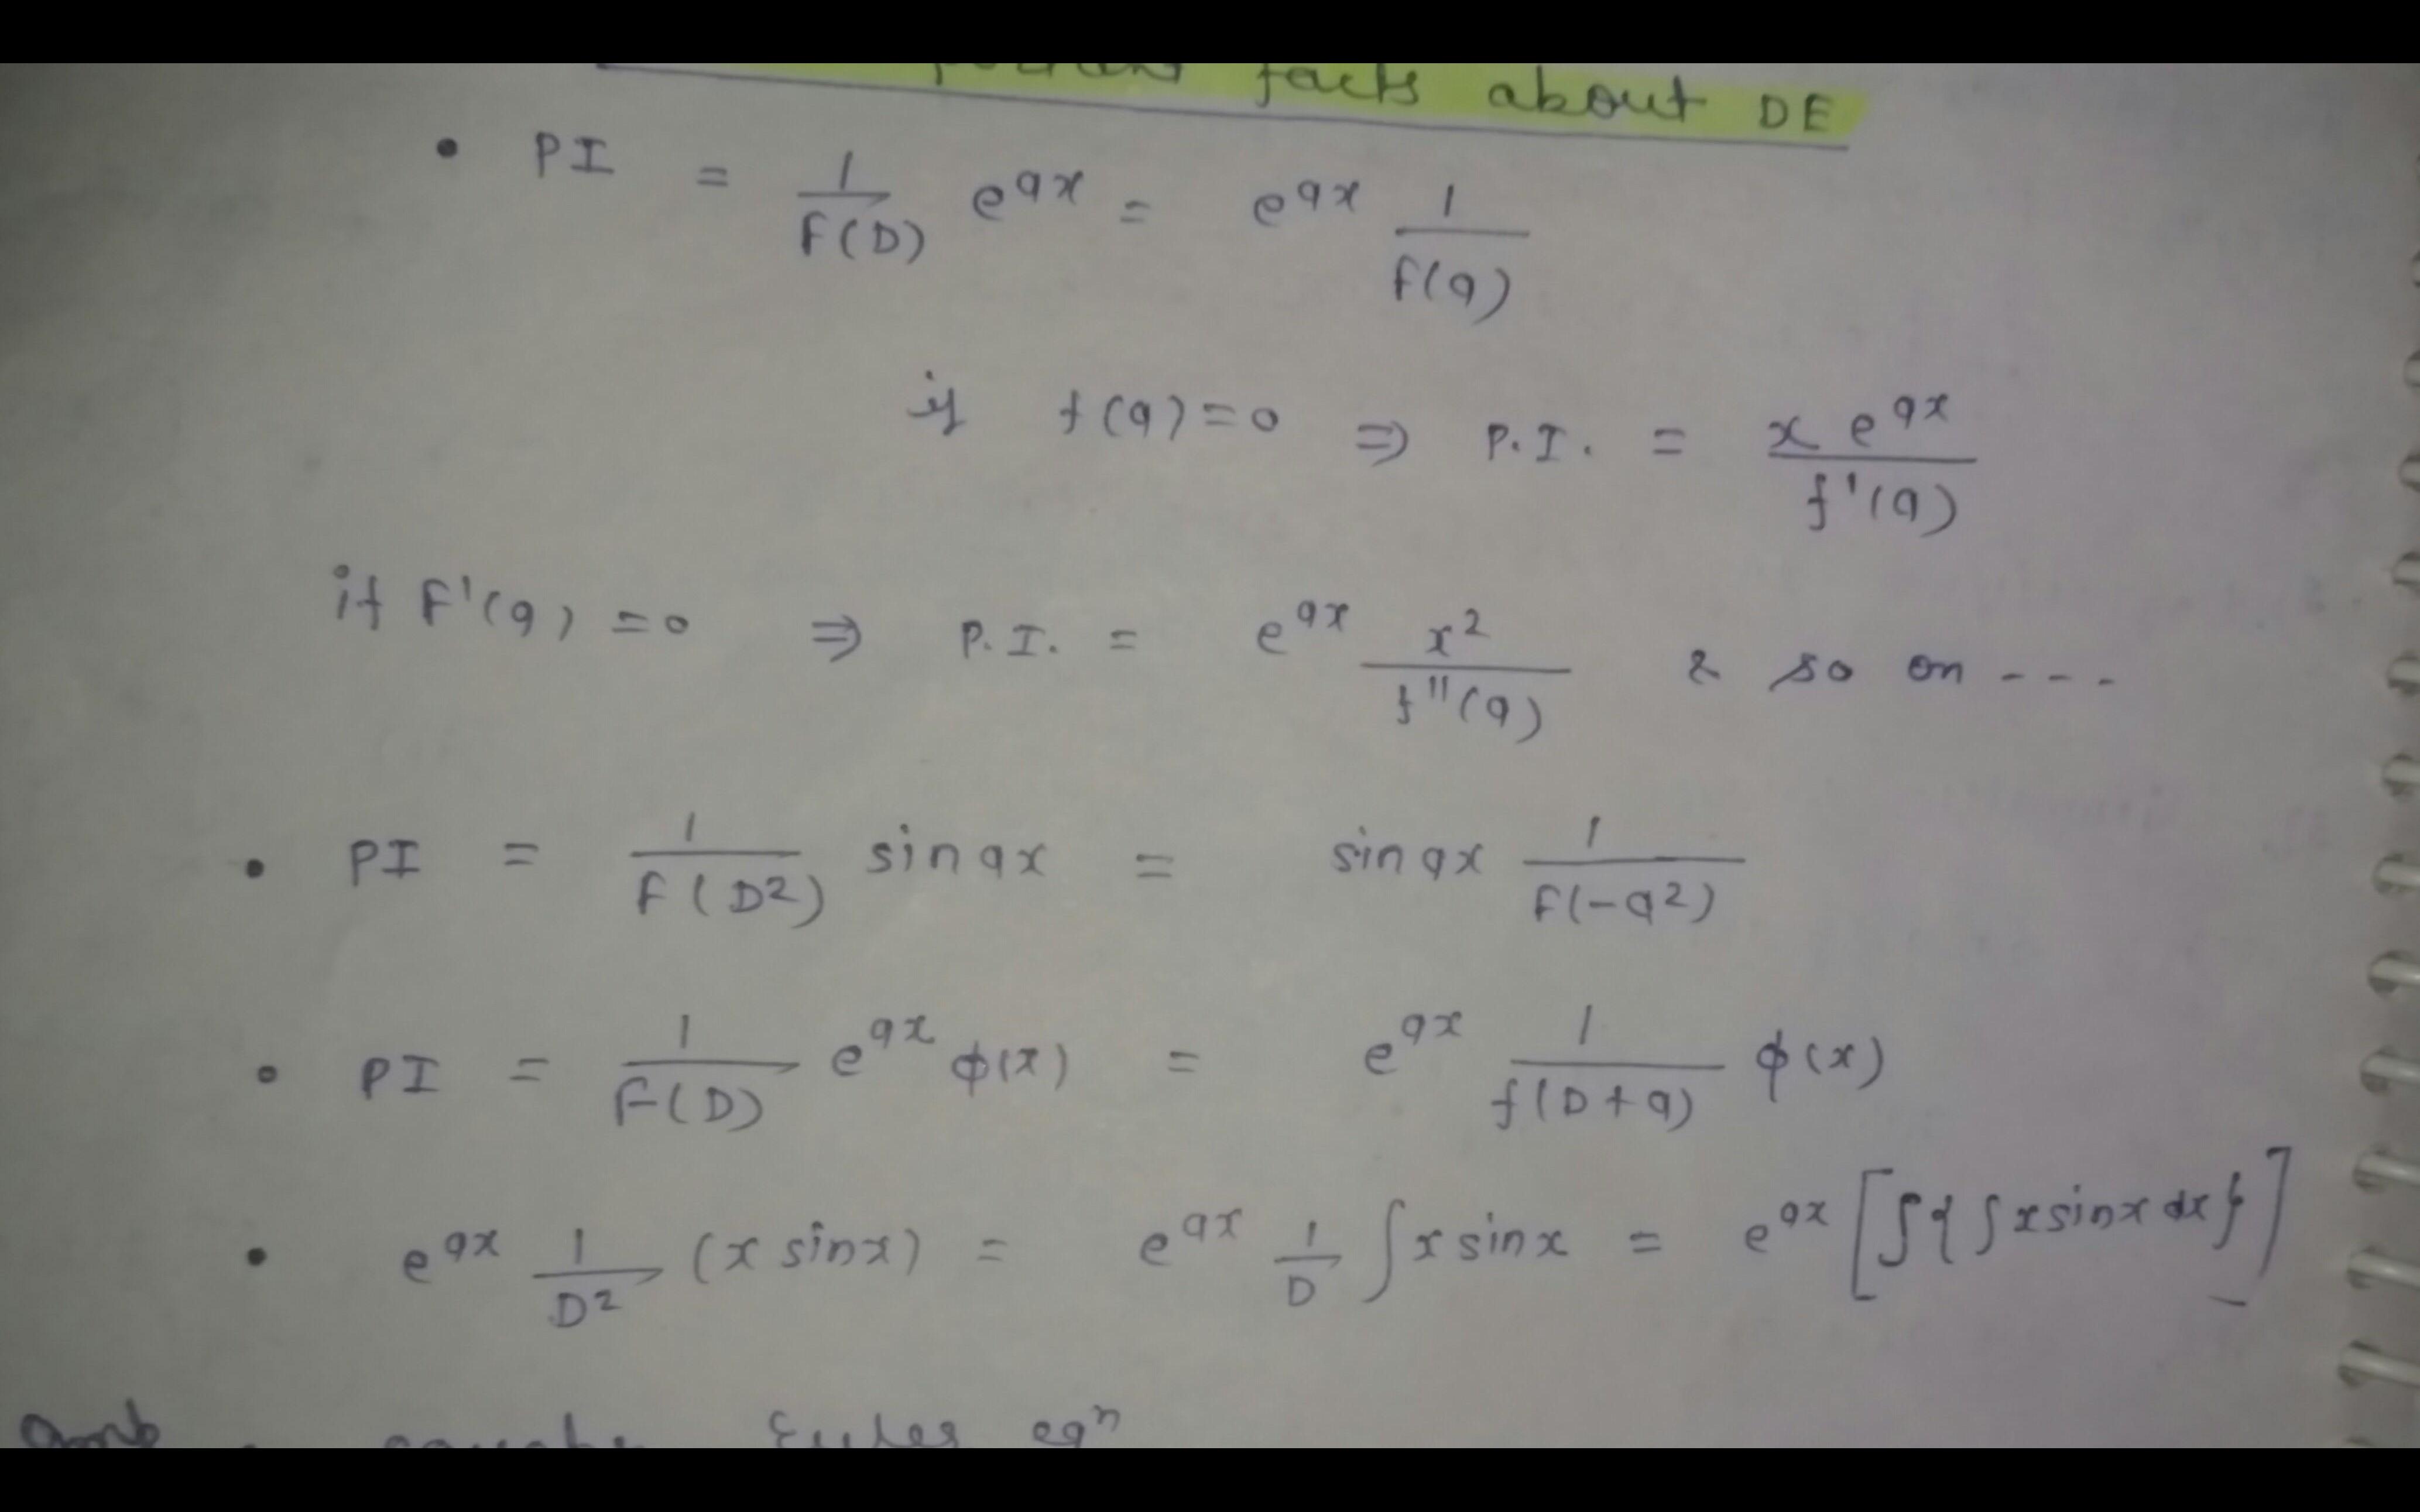 facts about DE
• PI = 1/F(D) e^ax = e^ax 1/f(a)
if f(a)=0 ⇒ P.I. = x e^ax / f'(a)
if F'(a) =0 ⇒ P.I. = e^ax x^2/f''(a) & so on ---
• PI = 1/F(D^2) sin ax = sin ax 1/F(-a^2)
• PI = 1/F(D) e^ax ϕ(x) = e^ax 1/f(D+a) ϕ(x)
• e^ax 1/D^2 (x sinx) = e^ax 1/D ∫x sinx = e^ax [∫{∫x sinx dx}]
Eulers eq^n